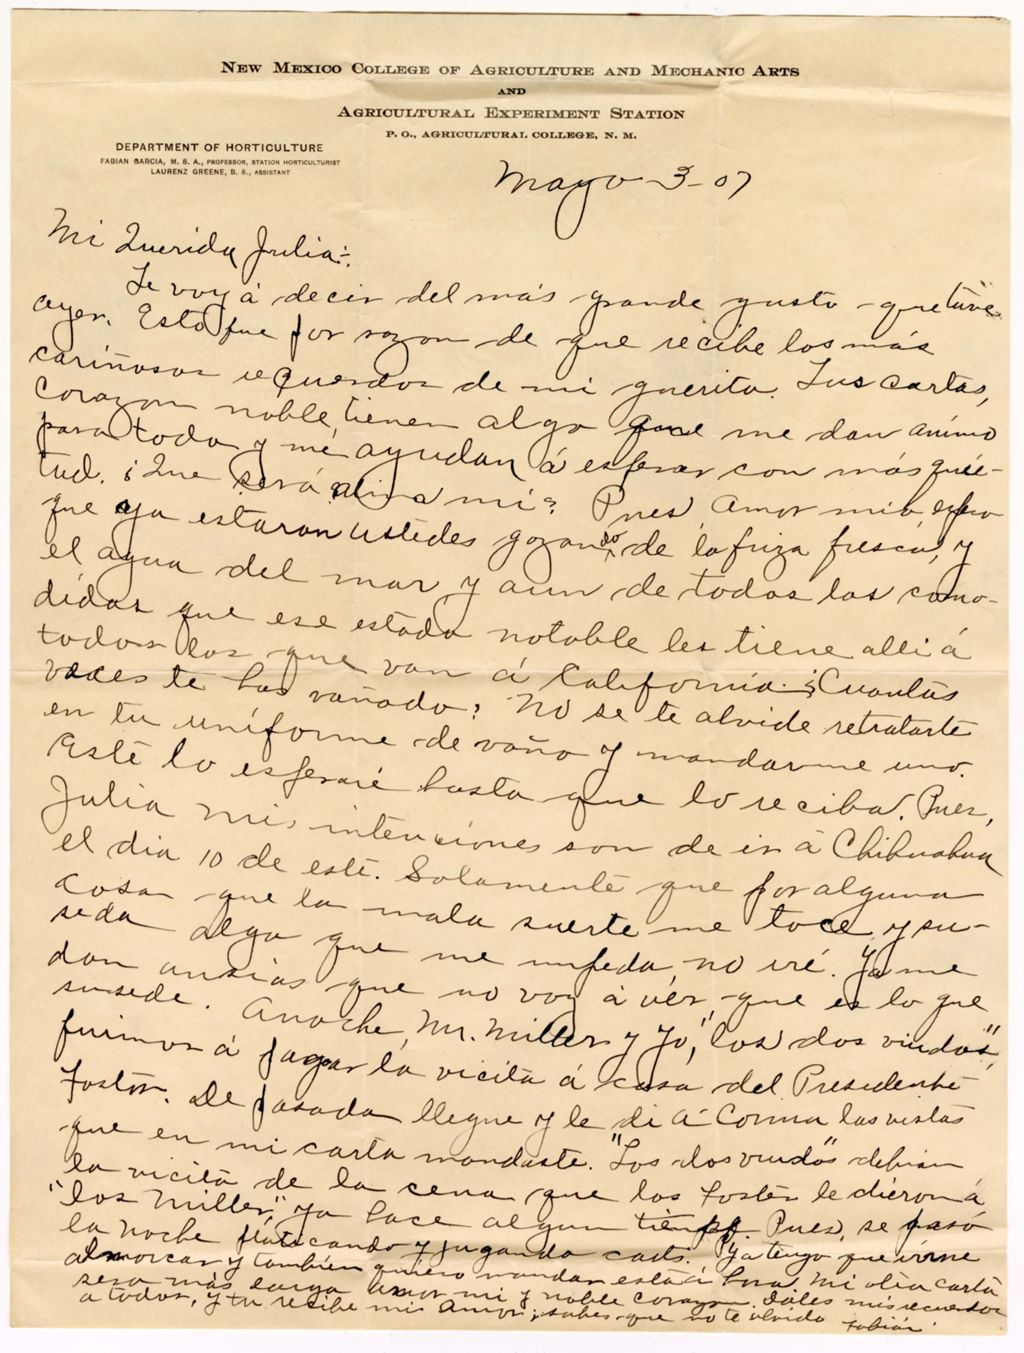 NEW MEXICO COLLEGE OF AGRICULTURE AND MECHANIC ARTS
AND
AGRICULTURAL EXPERIMENT STATION
P. O., AGRICULTURAL COLLEGE, N. M.
DEPARTMENT OF HORTICULTURE
FABIAN GARCIA, M. S. A., PROFESSOR, STATION HORTICULTURIST
LAURENZ GREENE, B. S., ASSISTANT
Mayo-3-07
Mi Querida Julia:
Te voy á decir del más grande gusto que tuve
ayer. Esto fue por razon de que recibe los más
cariñosos recuerdos de mi guerita. Tus cartas,
Corazon noble, tienen algo que me dan ánimo
para todo y me ayudan á esperar con más quie-
tud. ¡Que será mi? Pues, Amor mio, espero
que ya estaran ustedes gozando de la friza fresca, y
el agua del mar y aun de todas las como-
didas que ese estado notable les tiene alli á
todos los que van á California. ¿Cuantas
veces te has vañado? No se te olvide retratarte
en tu uniforme de vaño y mandarme uno.
Esté lo esperaré hasta que lo reciba. Pues,
Julia mis intenciones son de ir á Chihuahua
el dia 10 de esté. Solamente que por alguna
cosa que la mala suerte me toce y su-
seda algo que me impeda, no iré. Ya me
dan ansias que no voy á vér, que es lo que
susede. Anoche, Mr. Miller y Yó, "los dos viudos",
fuimos á pagar la vicita á casa del Presidente
Foster. De pasada llegue y le di á Corina las vistas
que en mi carta mandaste. "Los dos viudos" debian
la vicita de la cena que los Foster le dieron á
"los Miller," ya hace algun tiempo. Pues, se pasó
la noche platicando y jugando cards. Ya tengo que irme
almorzar y tambien quiero mandar esta á hora. Mi otra carta
sera más larga Amor mi y noble corazon. Dáles mis recuerdos
a todos, y tu recibe mi amor; sabes que no te olvida Fabián